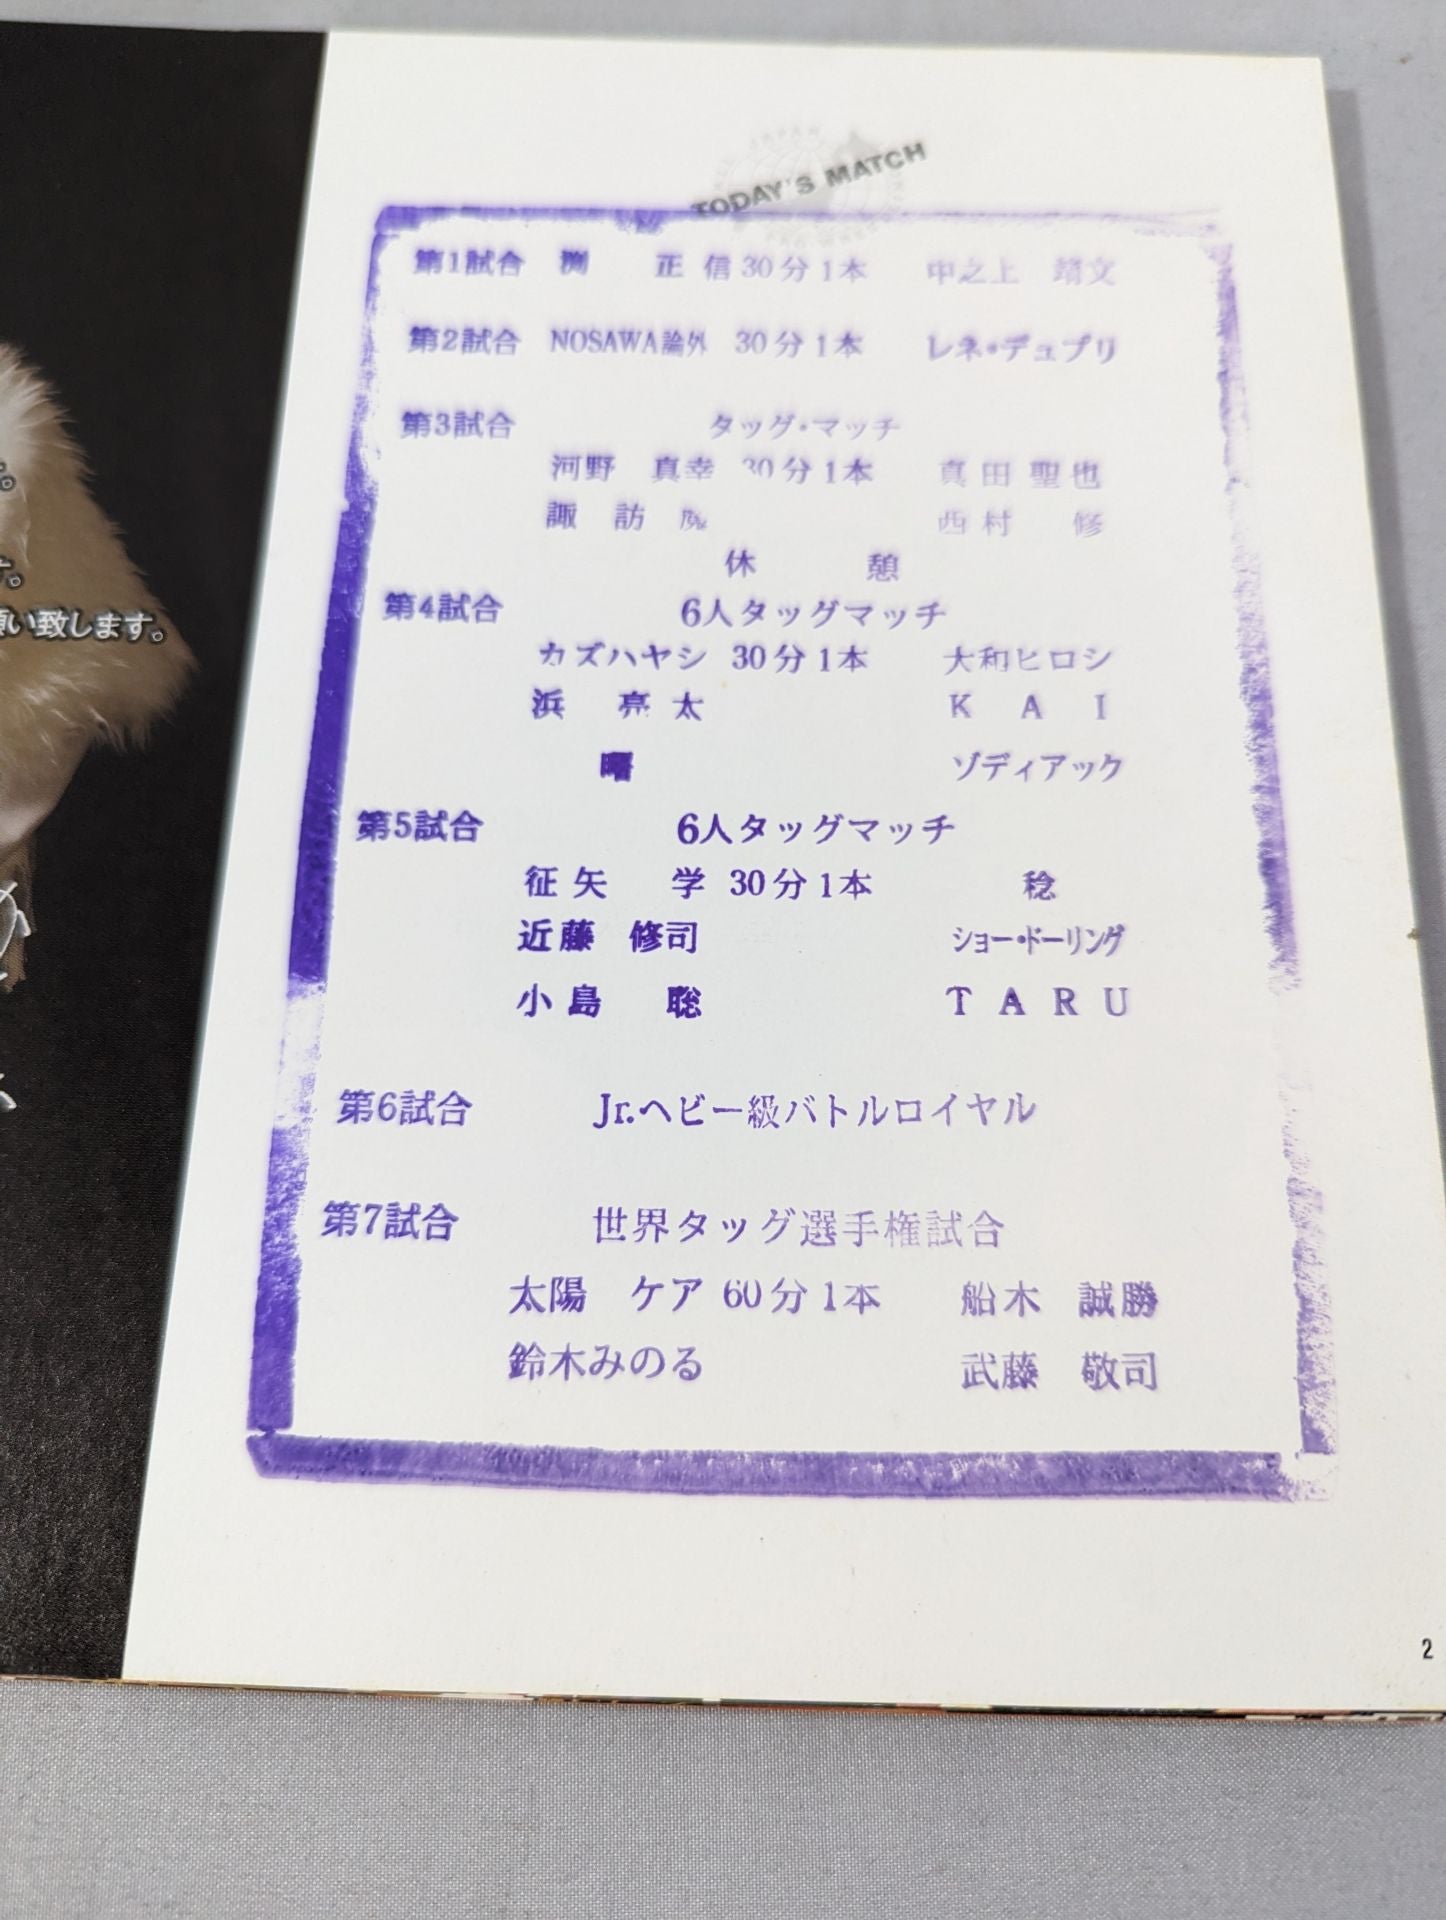 す。
願い致します。
TODAY'S MATCH
第1試合 渕 正信 30分1本 中之上 靖文
第2試合 NOSAWA論外 30分1本 レネ・デュプリ
第3試合 タッグ・マッチ
河野 真幸 30分1本 真田 聖也
諏訪 魔 西村 修
休憩
第4試合 6人タッグマッチ
カズハヤシ 30分1本 大和ヒロシ
浜 亮太 KAI
曙 ゾディアック
第5試合 6人タッグマッチ
征矢 学 30分1本 稔
近藤 修司 ジョー・ドーリング
小島 聡 TARU
第6試合 Jr.ヘビー級バトルロイヤル
第7試合 世界タッグ選手権試合
太陽 ケア 60分1本 船木 誠勝
鈴木みのる 武藤 敬司
2